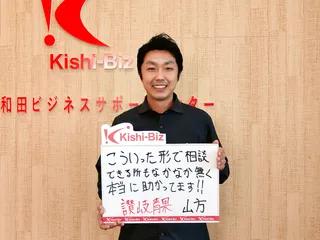 Kishi-Biz
和田ビジネスサポー
ター
Kishi-Biz
こういった形で相談
できる所もなかなか無く
本当に助かってます!!
讃岐青果 山方